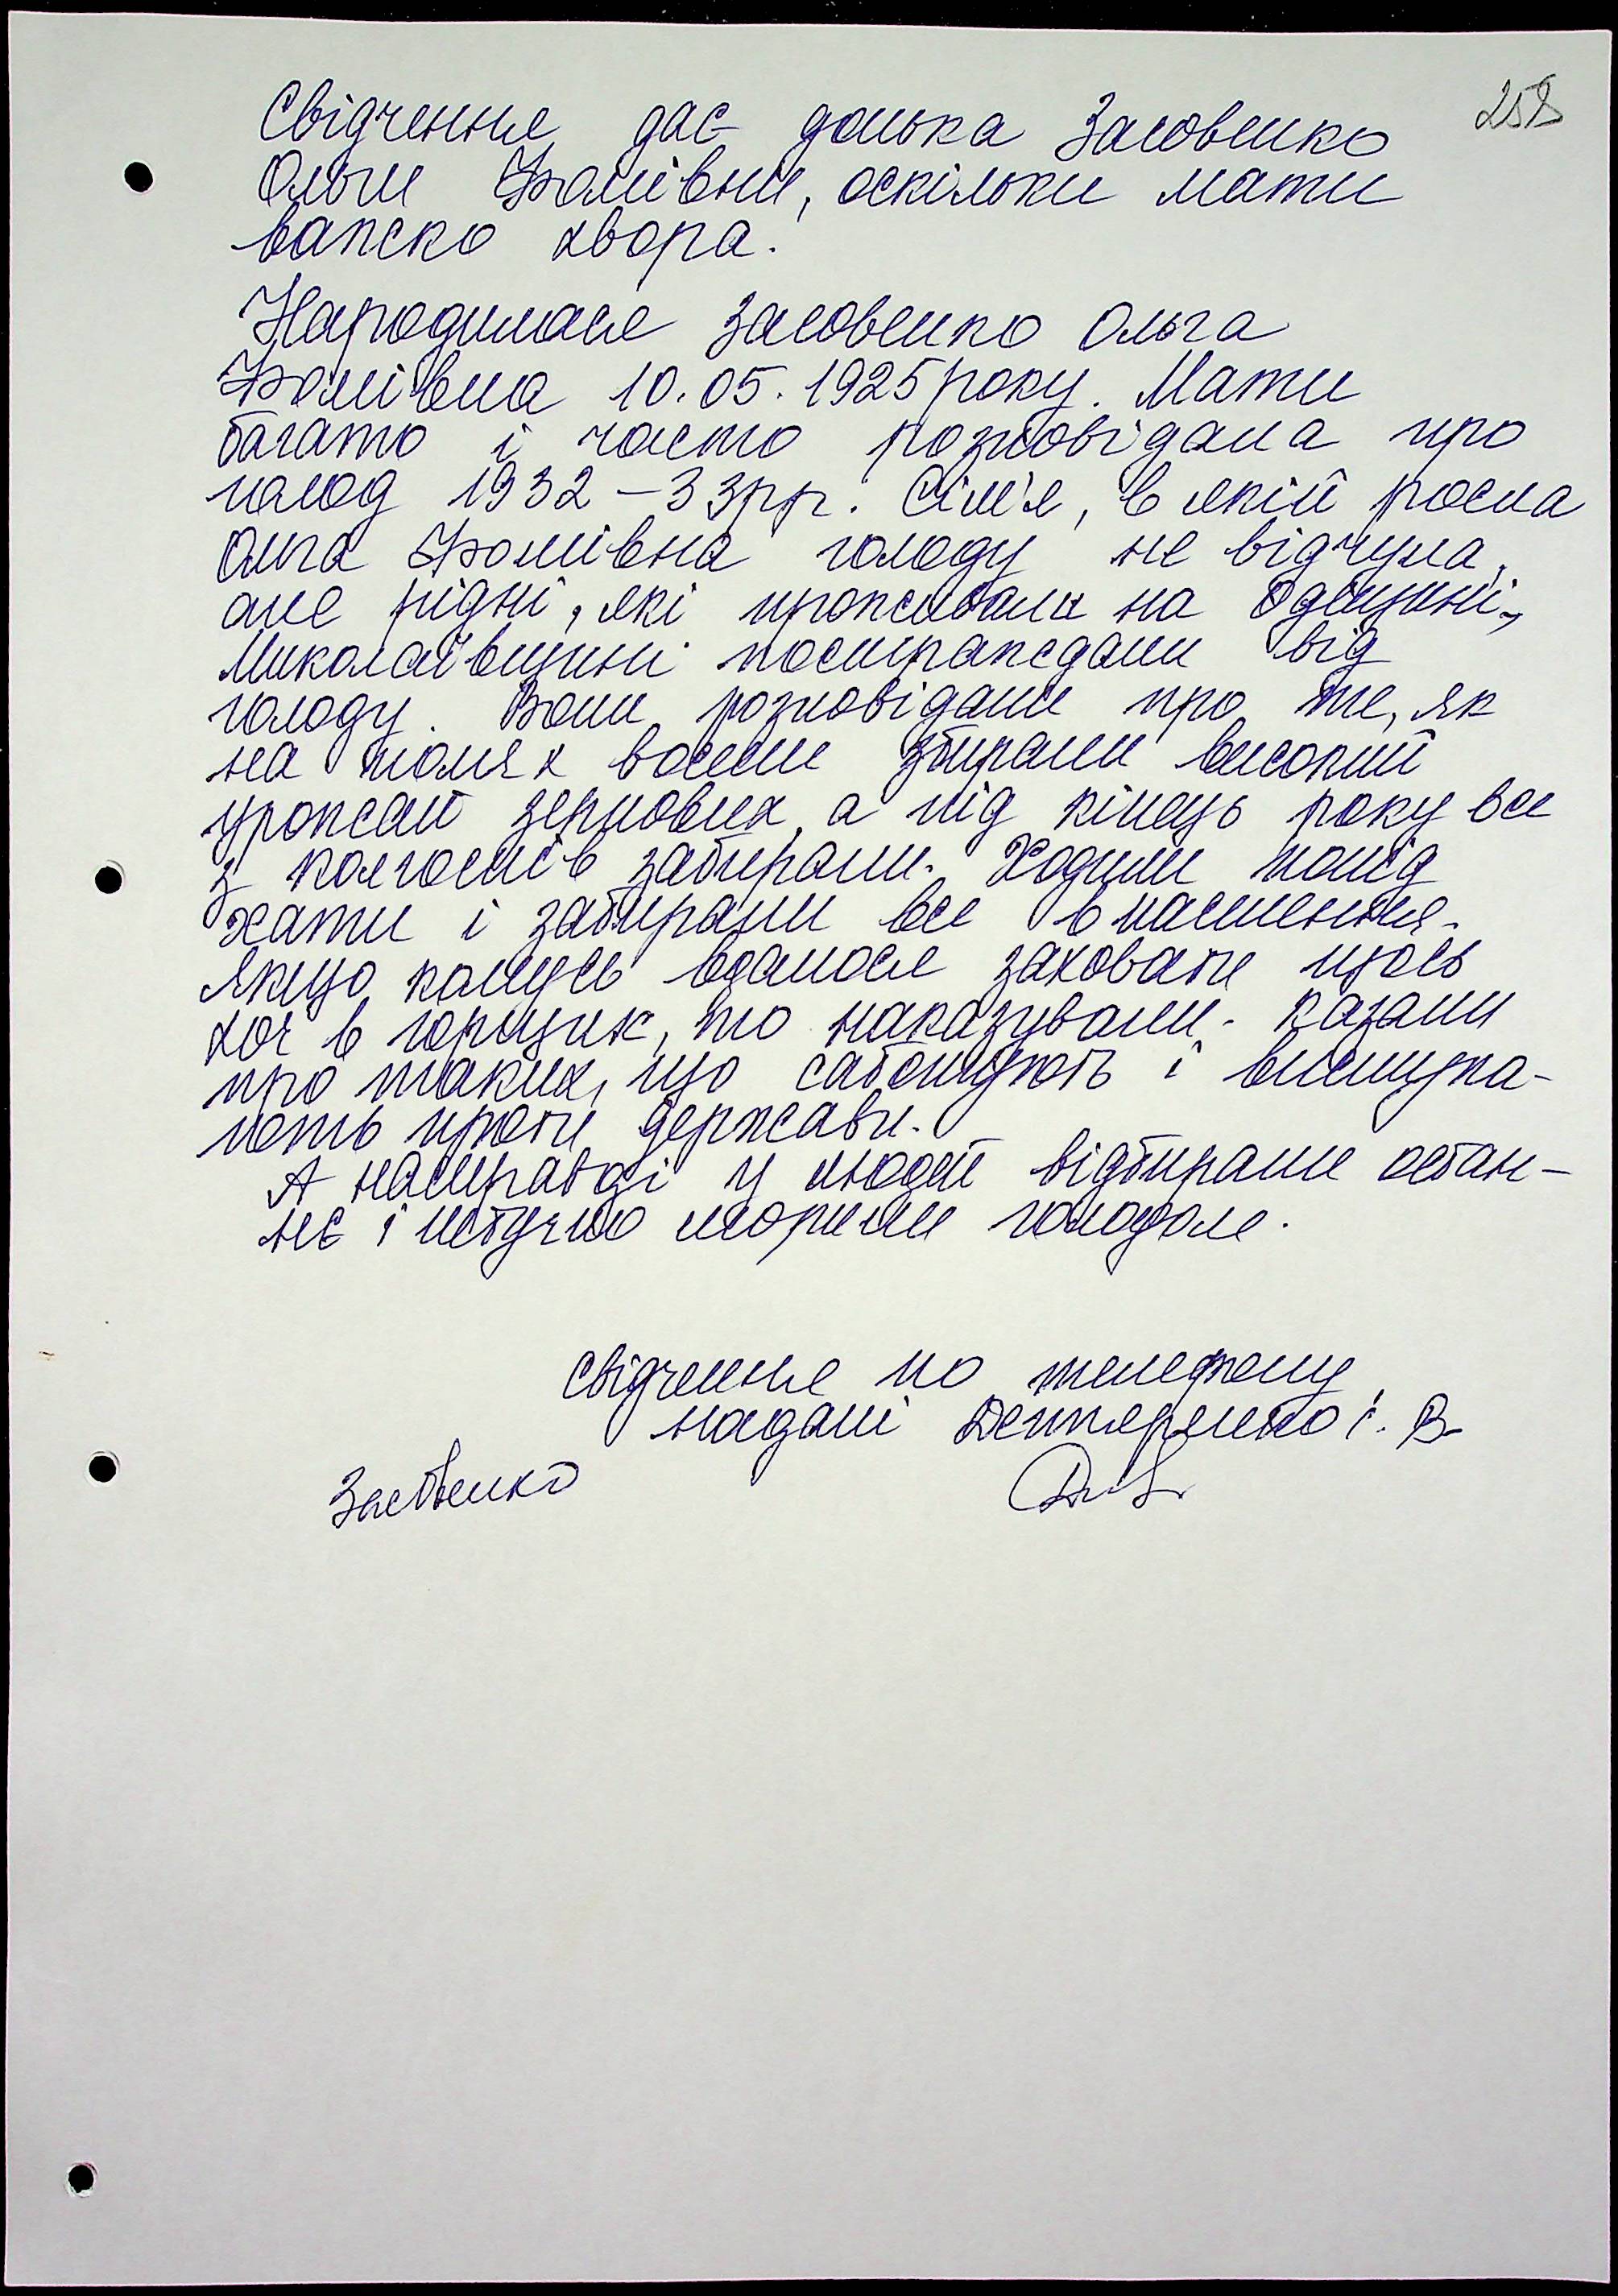 258
Свідчення дає донька Засовенко
Ольги Фомівни, оскільки мати
важко хвора.
Народилася Засовенко Ольга
Фомівна 10.05.1925 року. Мати
багато і часто розповідала про
голод 1932-33рр. Сім'я, в якій росла
Ольга Фомівна голоду не відчула,
але рідні, які проживали на Одещині,
Миколаївщині постраждали від
голоду. Вони розповідали про те, як
на полях восени збирали високий
урожай зернових, а під кінець року все
з колгоспів забирали. Ходили попід
хати і забирали все в населення.
Якщо комусь вдалося заховати щось
хоч в горщик, то наказували. Казали
про таких, що саботують і виступа-
ють проти держави.
А насправді у людей відбирали остан-
нє і штучно морили голодом.
Свідчення по телефону
надані Дегтяренко І. В.
Засовенко